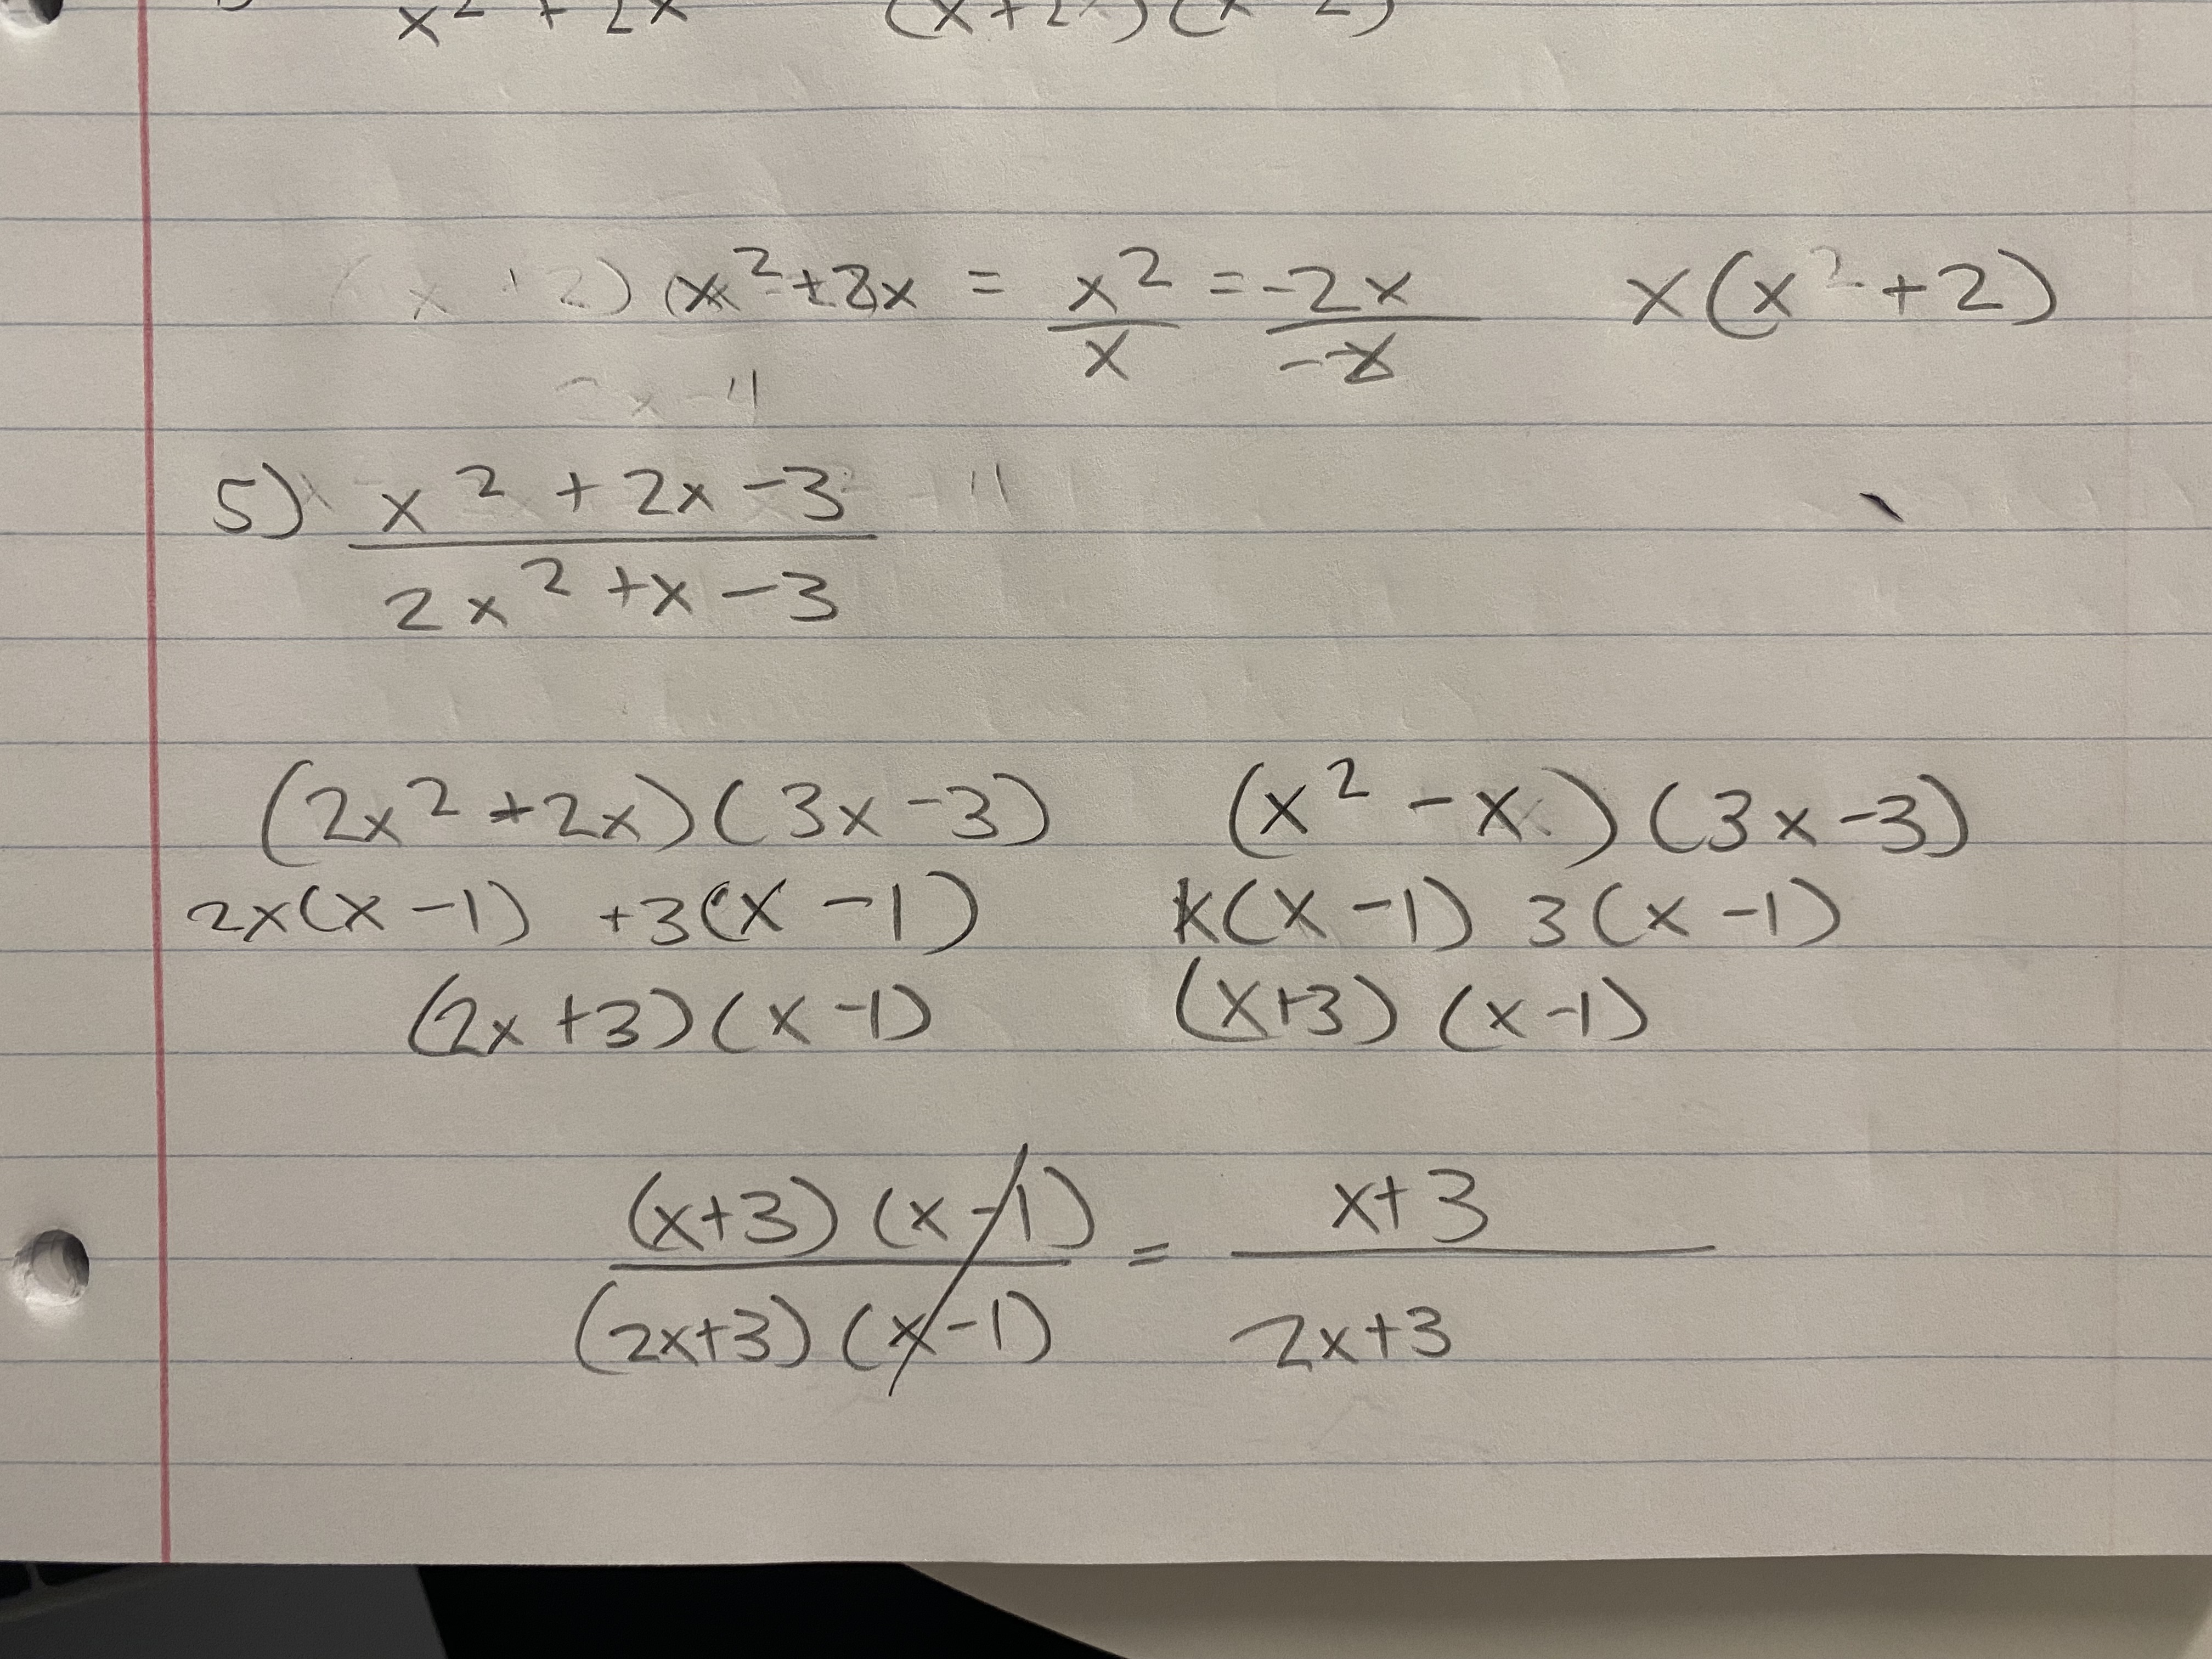 x² + 2x (x+2x)(x-2)
(x - 2) (x²+2x = x²/x = -2x/-x x(x²+2)
5) x² + 2x - 3
2x² + x - 3
(2x² + 2x)(3x - 3) (x² - x)(3x - 3)
2x(x - 1) + 3(x - 1) x(x - 1) 3(x - 1)
(2x + 3)(x - 1) (x+3)(x - 1)
(x+3)(x-1) = x+3
(2x+3)(x-1) 2x+3